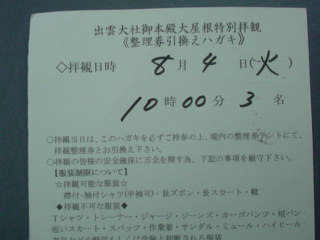 出雲大社御本殿大屋根特別拝観
《整理券引換えハガキ》
◇拝観日時 8月4日(火)
10時00分 3名
○拝観当日は、このハガキを必ずご持参の上、境内の整理券テントにて、
拝観整理券とお引換え下さい。
○拝観の皆様の安全確保に万全を期す為、下記の事項を厳守下さい。
【服装制限について】
☆拝観可能な服装☆
襟付・袖付シャツ(半袖可)・長ズボン・長スカート・靴
◆拝観不可な服装◆
Tシャツ・トレーナー・ジャージ・ジーンズ・カーゴパンツ・短パン
短いスカート・スパッツ・作業着・サンダル・ミュール・ハイヒール